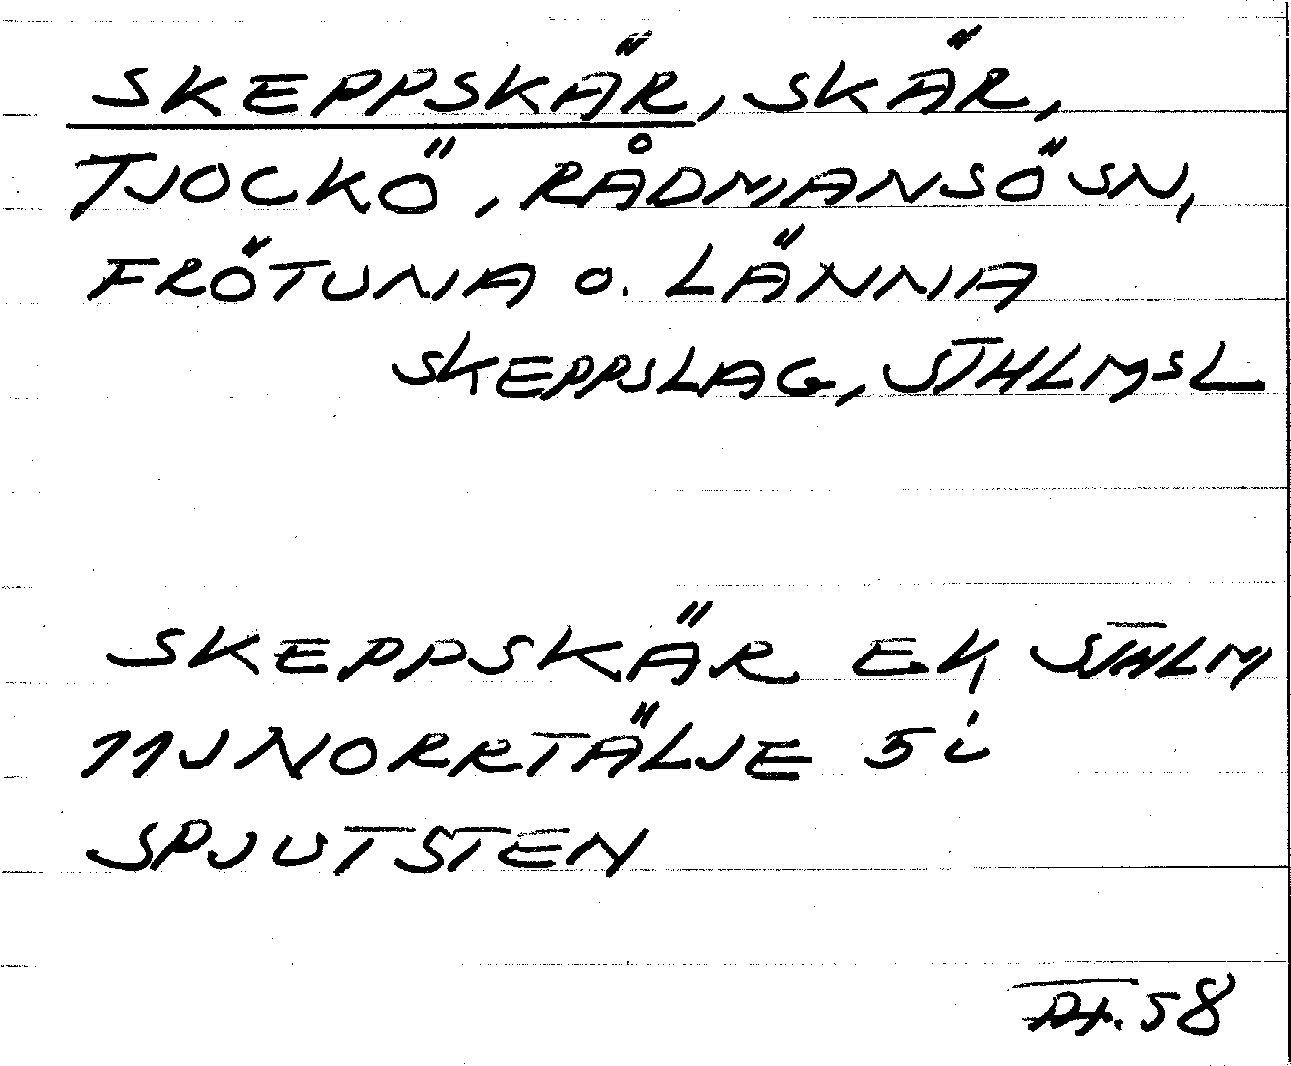 SKEPPSKÄR, SKÄR,
TJOCKÖ, RÅDMANSÖ SN,
FRÖTUNA o. LÄNNA
SKEPPSLAG, STHLMSL
SKEPPSKÄR EK STHLM
11J NORRTÄLJE 5i
SPJUTSTEN
58